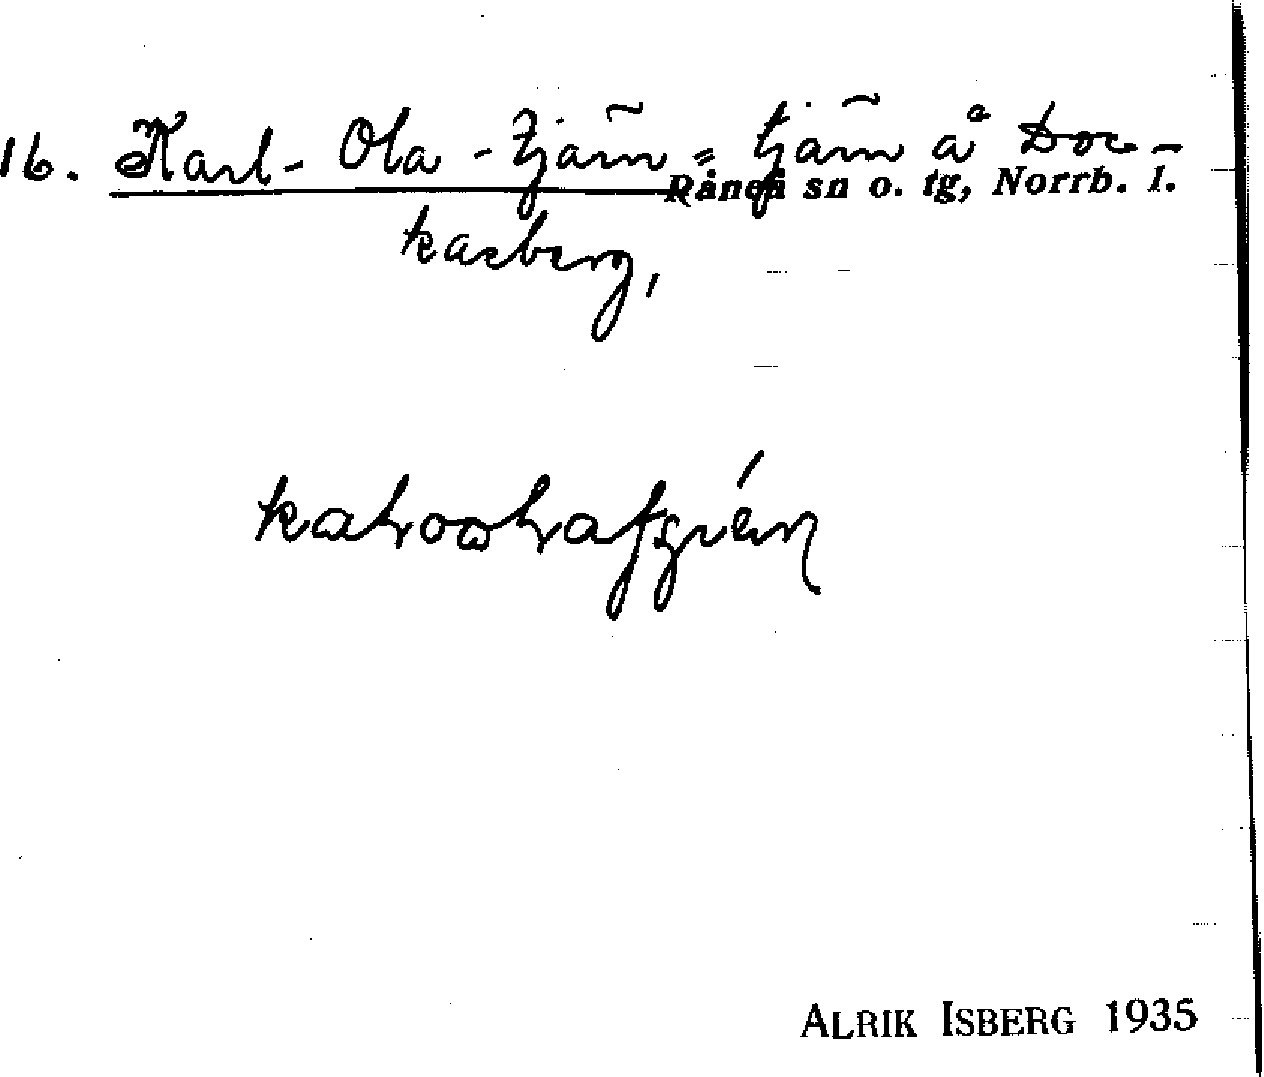 16. Karl-Ola-tjärn = tjärn å Doc-
Råneå sn o. tg, Norrb. l.
kasberg,
ALRIK ISBERG 1935